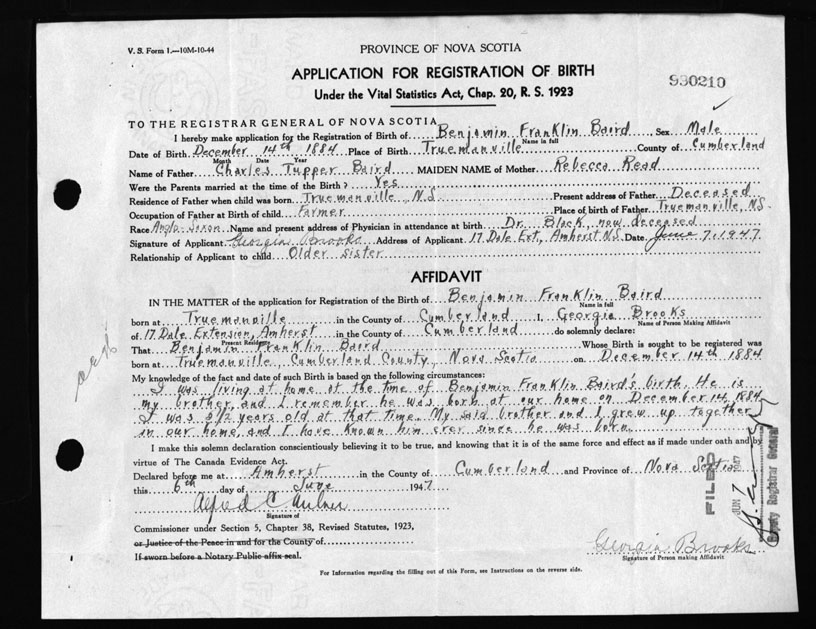 V. S. Form 1.—10M-10-44
PROVINCE OF NOVA SCOTIA
APPLICATION FOR REGISTRATION OF BIRTH
930210
Under the Vital Statistics Act, Chap. 20, R. S. 1923
TO THE REGISTRAR GENERAL OF NOVA SCOTIA
I hereby make application for the Registration of Birth of Benjamin Franklin Baird, Sex Male
Name in full
Date of Birth December 14th 1884 Place of Birth Truemanville County of Cumberland
Month Date Year
Name of Father Charles Tupper Baird MAIDEN NAME of Mother Rebecca Read
Were the Parents married at the time of the Birth? Yes
Residence of Father when child was born Truemanville, N.S. Present address of Father Deceased
Occupation of Father at Birth of child Farmer Place of birth of Father Truemanville, N.S.
Race Anglo-Saxon Name and present address of Physician in attendance at birth Dr. Black, now deceased
Signature of Applicant Georgia Brooks Address of Applicant 17 Dale Ext, Amherst N.S. Date June 7, 1947
Relationship of Applicant to child Older sister
AFFIDAVIT
IN THE MATTER of the application for Registration of the Birth of Benjamin Franklin Baird
Name in full
born at Truemanville in the County of Cumberland I, Georgia Brooks
Name of Person Making Affidavit
of 17 Dale Extension, Amherst in the County of Cumberland do solemnly declare:
Present Residence
That Benjamin Franklin Baird Whose Birth is sought to be registered was
born at Truemanville, Cumberland County, Nova Scotia on December 14th 1884
My knowledge of the fact and date of such Birth is based on the following circumstances:
I was living at home at the time of Benjamin Franklin Baird's birth. He is
my brother, and I remember he was born at our home on December 14, 1884
I was 8½ years old at that time. My said brother and I grew up together
in our home, and I have known him ever since he was born.
I make this solemn declaration conscientiously believing it to be true, and knowing that it is of the same force and effect as if made under oath and by
virtue of The Canada Evidence Act.
Declared before me at Amherst in the County of Cumberland and Province of Nova Scotia
this 6th day of June 1947
Signature of
Commissioner under Section 5, Chapter 38, Revised Statutes, 1923,
or Justice of the Peace in and for the County of
If sworn before a Notary Public affix seal.
FILED
JUN 7 1947
Deputy Registrar General
Georgia Brooks
Signature of Person making Affidavit
For Information regarding the filling out of this Form, see Instructions on the reverse side.